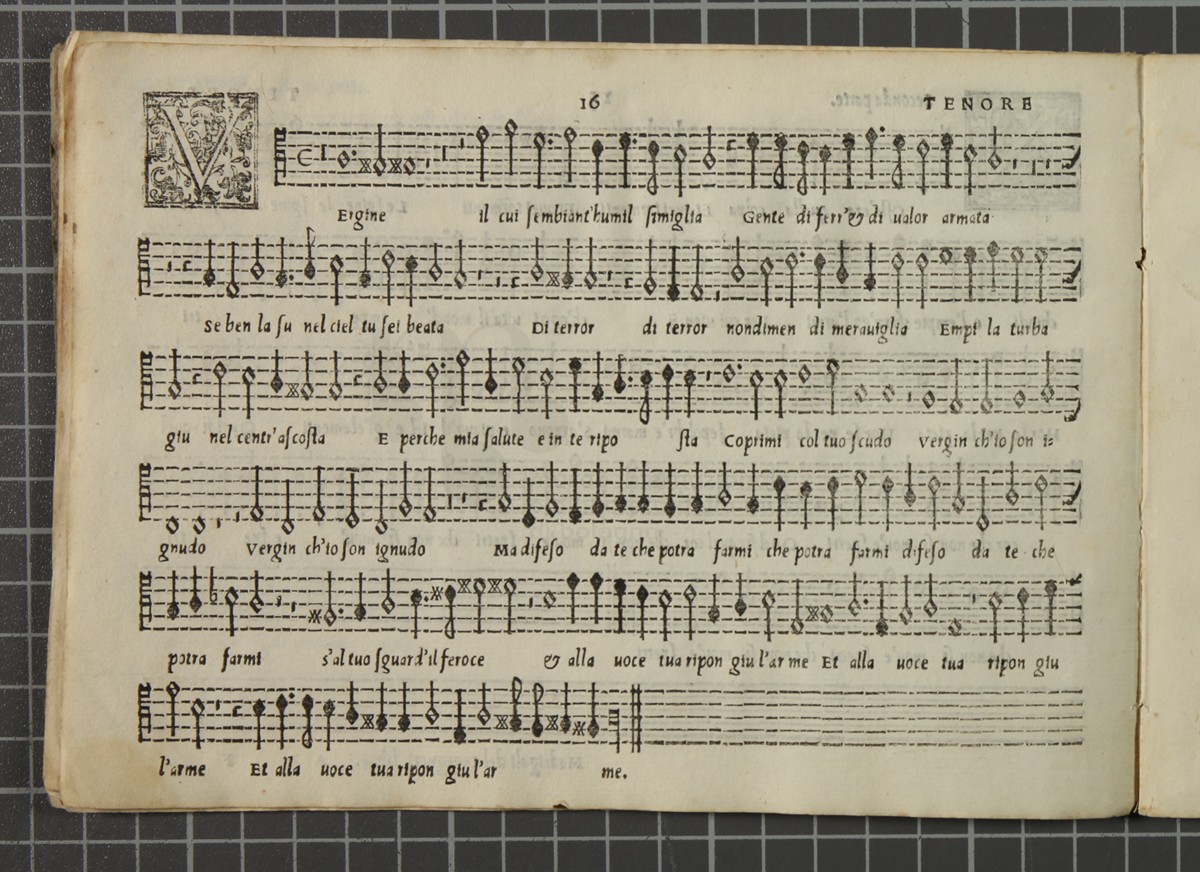 16 TENORE
V Ergine il cui sembiant'humil simiglia Gente di ferr'& di ualor armata
Se ben la su nel ciel tu sei beata Di terror di terror nondimen di merauiglia Empi la turba
giu nel centr'ascosta E perche mia salute e in te ripo sta Coprimi col tuo scudo Vergin ch'io son i=
gnudo Vergin ch'io son ignudo Ma difeso da te che potra farmi che potra farmi difeso da te che
potra farmi s'al tuo sguard'il feroce & alla uoce tua ripon giu l'ar me Et alla uoce tua ripon giu
l'arme Et alla uoce tua ripon giu l'ar me.